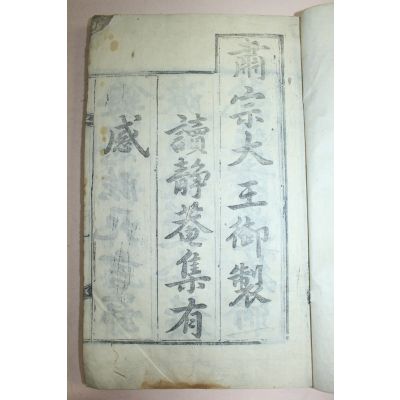 肅宗大王御製
讀静菴集有
感